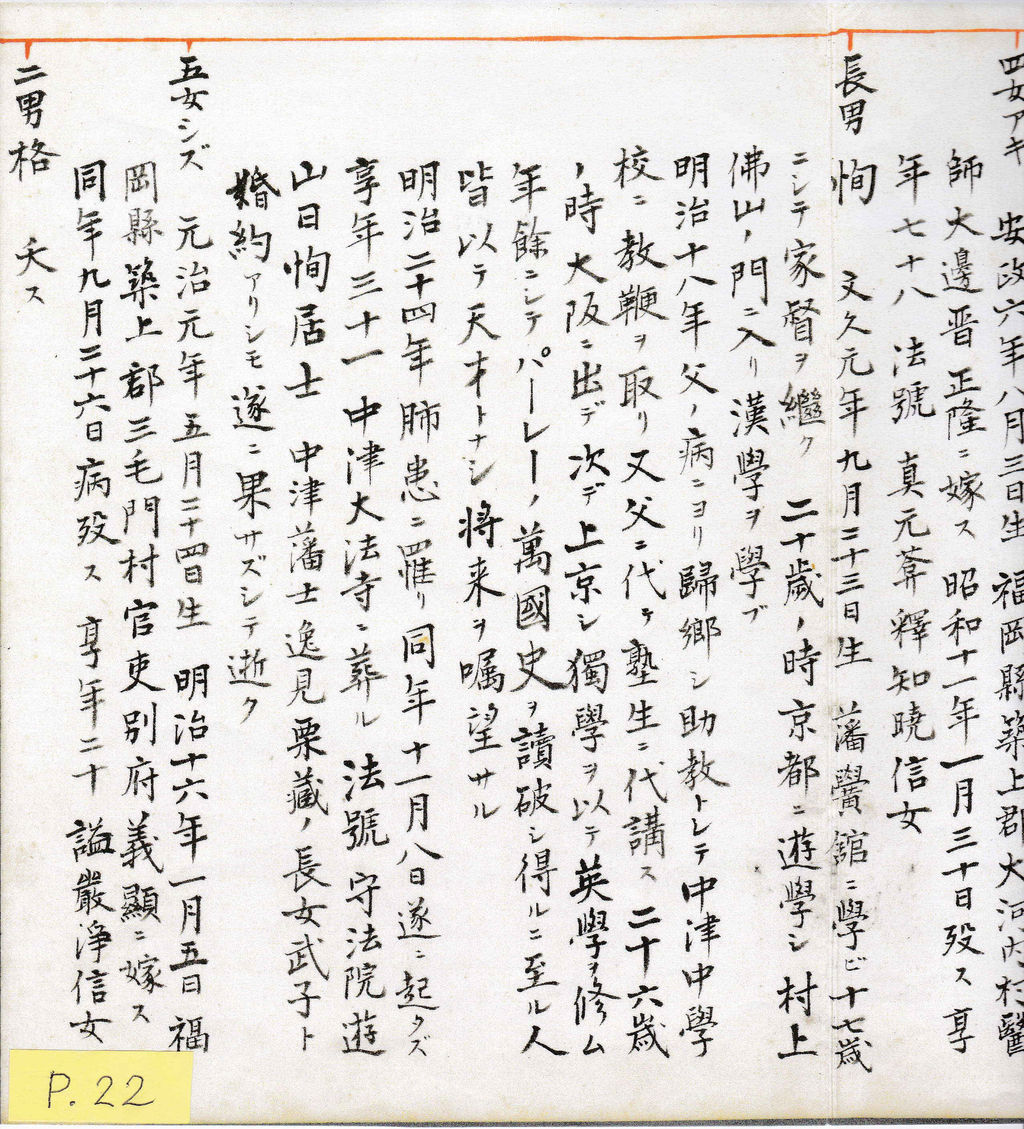 四女アキ 安政六年八月三日生 福岡縣築上郡大河内村醫
師大邊晋正隆ニ嫁ス 昭和十一年一月三十日歿ス 享
年七十八 法號 真元葬釋知曉信女
長男 恂 文久元年九月二十三日生 藩黌舘ニ學ビ十七歳
ニシテ家督ヲ繼ク 二十歳ノ時京都ニ遊學シ村上
佛山ノ門ニ入リ漢學ヲ學ブ
明治十八年父ノ病ニヨリ歸郷シ助教トシテ中津中學
校ニ教鞭ヲ取リ又父ニ代テ塾生ニ代講ス 二十六歳
ノ時大阪ニ出デ次デ上京シ獨學ヲ以テ英學ヲ修ム
年餘ニシテパーレーノ萬國史ヲ讀破シ得ルニ至ル人
皆以テ天才トナシ将来ヲ嘱望サル
明治二十四年肺患ニ罹リ同年十一月八日遂ニ起タズ
享年三十一 中津大法寺ニ葬ル 法號 守法院遊
山日恂居士 中津藩士逸見栗藏ノ長女武子ト
婚約アリシモ遂ニ果サズシテ逝ク
五女シズ 元治元年五月二十四日生 明治十六年一月五日福
岡縣築上郡三毛門村官吏別府義顯ニ嫁ス
同年九月二十六日病歿ス 享年二十 謚嚴浄信女
二男格 夭ス
P.22